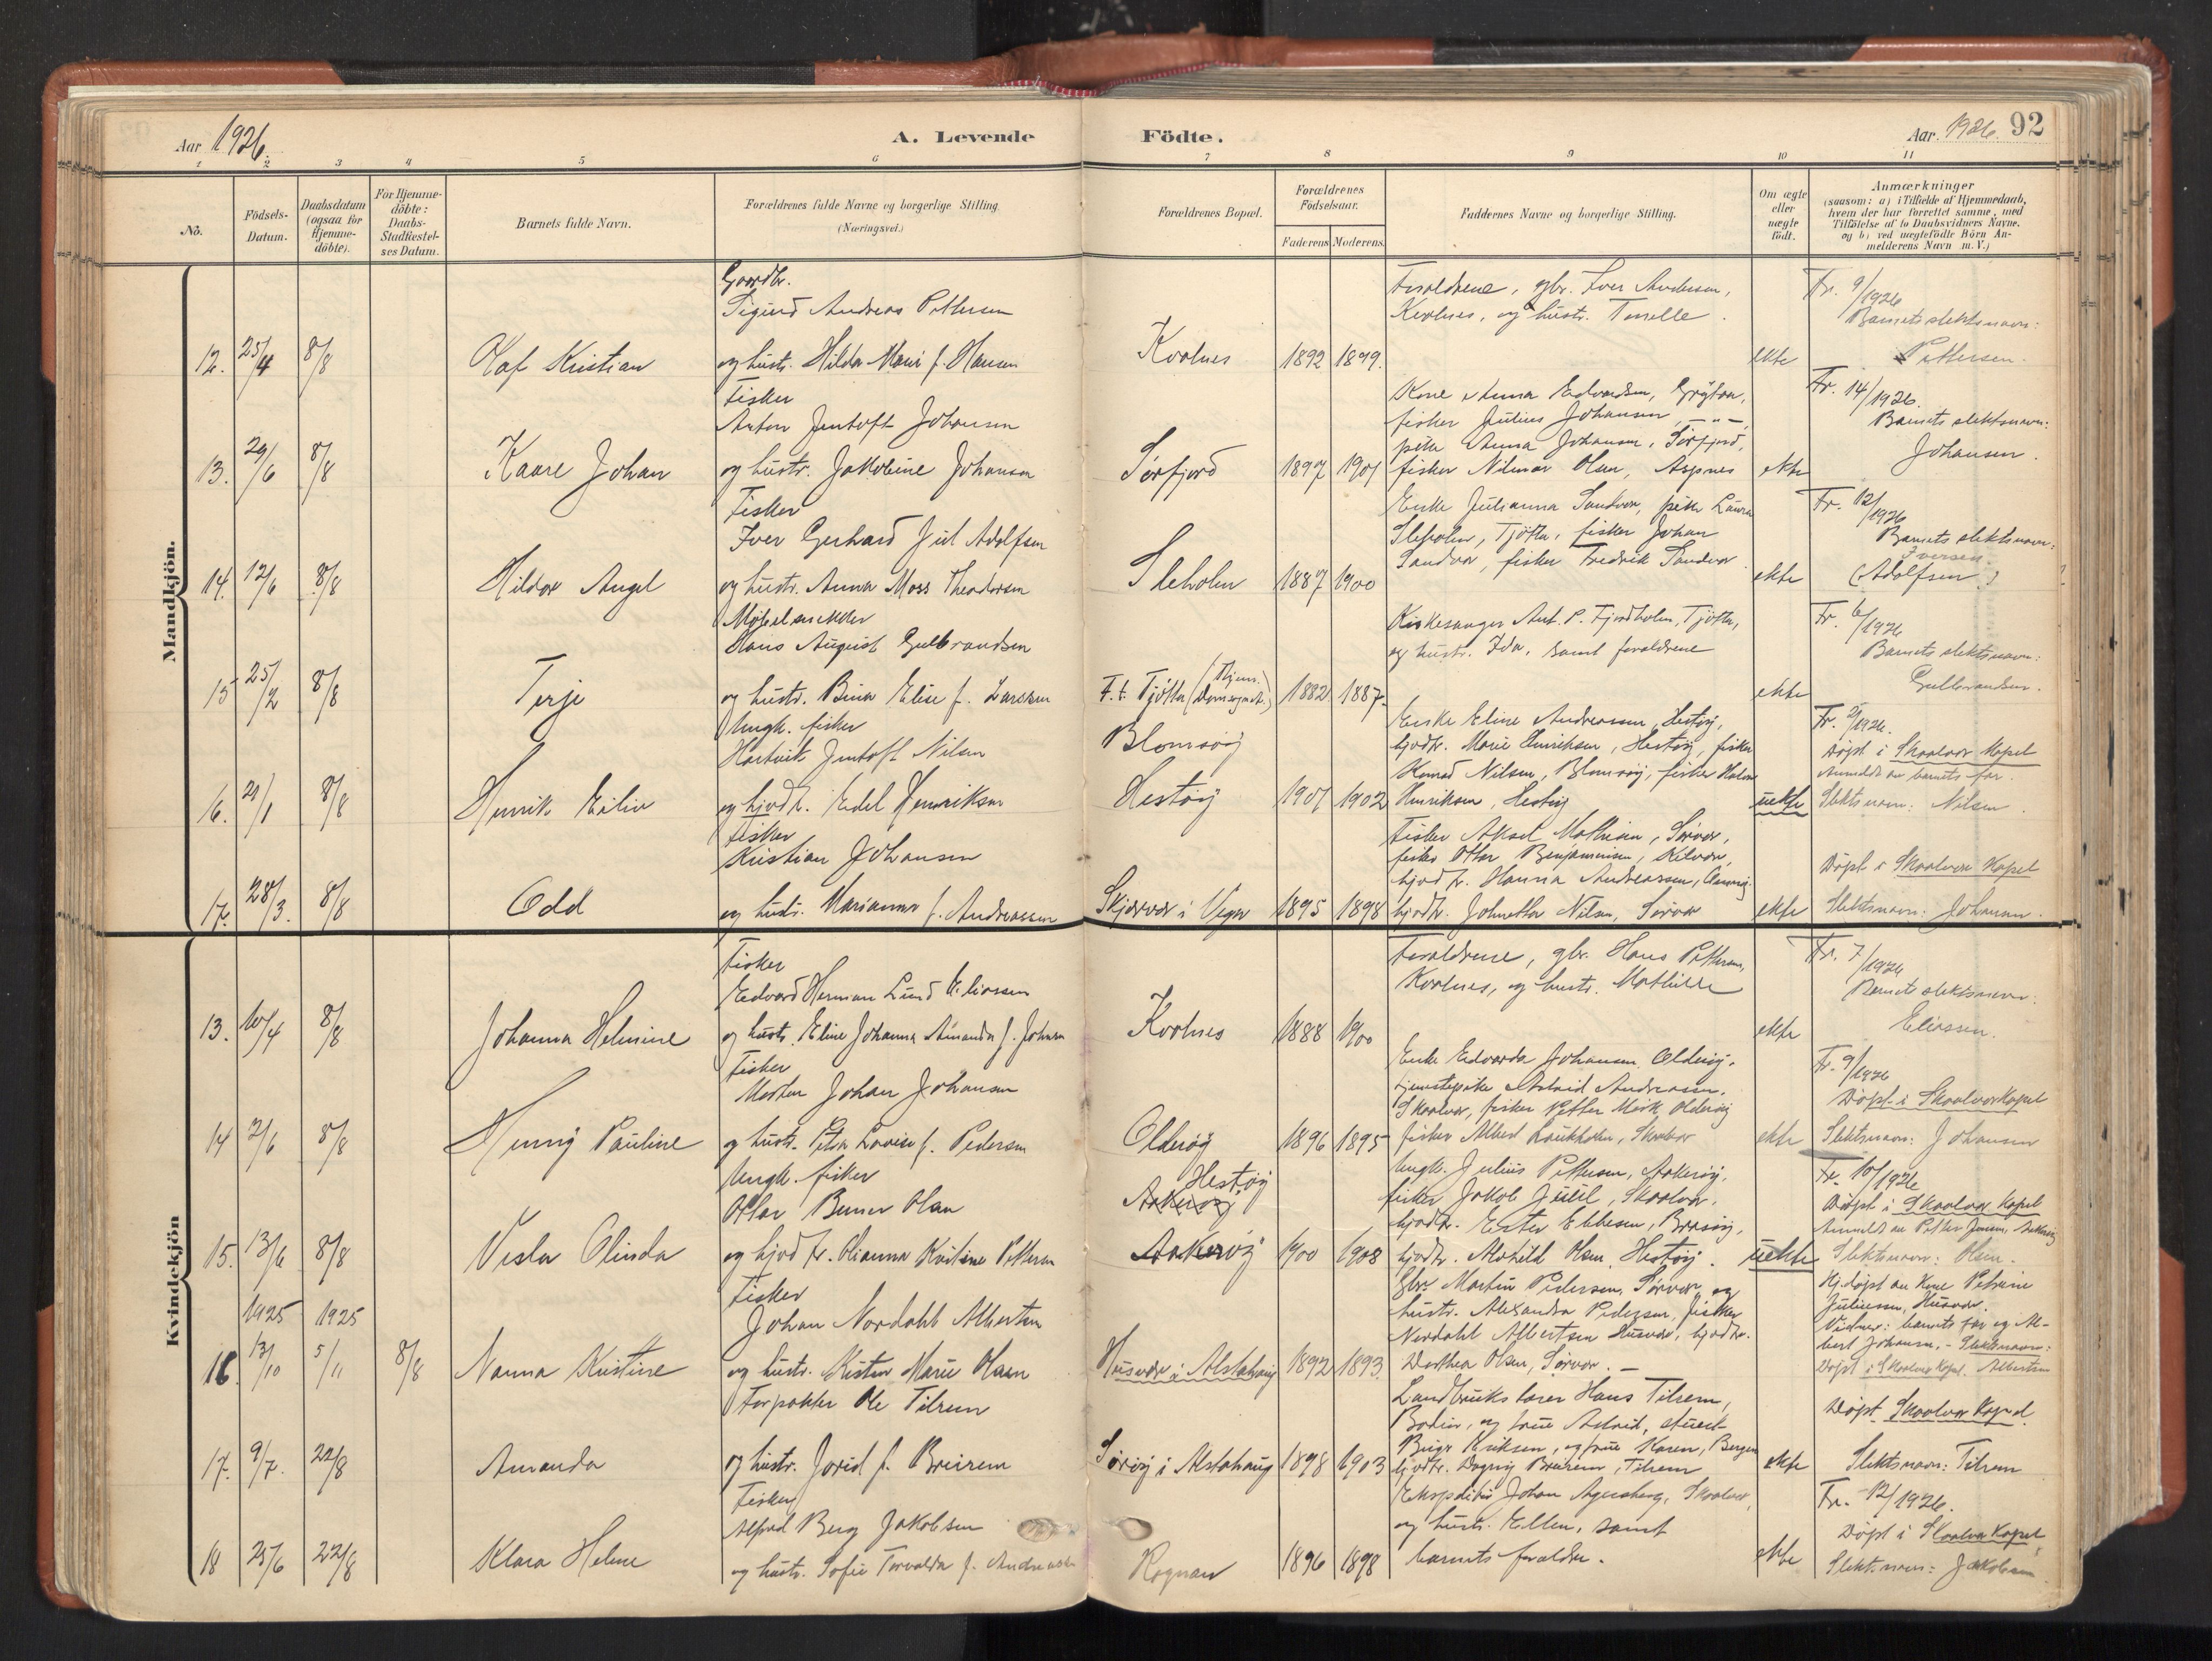 Aar 1926.
A. Levende
Födte.
Aar. 1926. 92
1 2 3 4 5 6 7 8 9 10 11
No.
Födsels-
Datum.
Daabsdatum
(ogsaa for
Hjemme-
döbte).
For Hjemme-
döbte:
Daabs-
Stadfæstel-
ses Datum.
Barnets fulde Navn.
Forældrenes fulde Navne og borgerlige Stilling.
(Næringsvei.)
Forældrenes Bopæl.
Forældrenes
Födselsaar.
Faderens Moderens.
Faddernes Navne og borgerlige Stilling.
Om ægte
eller
uægte
födt.
Anmærkninger
(saasom: a) i Tilfælde af Hjemmedaab,
hvem der har forrettet samme, med
Tilföielse af to Daabsvidners Navne,
og b) ved uægtefödte Börn An-
melderens Navn m. V.)
Mandkjön.
Gaardbr.
Sigurd Andreas Pettersen
12. 25/4 8/8 Olaf Kristian og hustr. Hilda Marie f. Hansen
Kvalnes 1892 1899.
Forældrene, gbr. Iver Andersen,
Kvalnes, og hustr. Tomelle.
ekte
Fr. 9/1926
Barnets slektsnavn:
Pettersen.
Fisker
Anton Jentoft Johansen
13. 29/6 8/8 Kaare Johan og hustr. Jakobine Johansen
Sørfjord 1897 1901
Kone Anna Edvardsen,
fisker Julius Johansen, - " -,
pike Anna Johansen, Sørfjord,
fisker Hilmar Olsen, Aspnes
ekte
Fr. 14/1926.
Barnets slektsnavn:
Johansen.
Fisker
Iver Gerhard Jul Adolfsen
14. 12/6 8/8 Hildor Angel og hustr. Anna Moss Theodorsen
Sleholm 1887 1900
Enke Julianna Sandvær, pike Laura
Sleholm, Tjøtta, fisker Johan
Sandvær, fisker Fredrik Sandvær.
ekte
Fr. 12/1926
Barnets slektsnavn:
Iversen.
(Adolfsen)
Møbelsnekker
Hans August Gulbrandsen
15 25/2 8/8 Terje og hustr. Bina Elise f. Larssen
F. t. Tjøtta (Hjem. 1882 1887.
Kirkesanger Ant. P. Fjordholm, Tjøtta,
og hustr. Ida, samt forældrene
ekte
Fr. 6/1926
Barnets slektsnavn:
Gulbrandsen.
Ungk. fisker
Hartvik Jentoft Nilsen
16. 21/1 8/8 Henrik Eiliv og hjvdtr. Edel Henriksen
Blomsøy
Hestøy 1901 1902
Enke Eline Andreassen, Hestøy,
hjvdtr. Marie Henriksen, Hestøy, fisker
Konrad Nilsen, Blomsøy, fisker
Henriksen, Hestøy
uekte
Fr. 2/1926.
Døpt i Skaalvær Kapel
Anmeldt av barnets far.
Slektsnavn: Nilsen.
Fisker
Kristian Johansen
17. 28/3. 8/8 Odd og hustr. Marianna f. Andreassen
Skjærvær i Vega 1895 1898
Fisker Aksel Mathisen, Sørvær,
fisker Ottar Benjaminsen,
hjvdtr. Hanna Andreassen,
hjvdtr. Johnetta Nilsen, Sørvær
ekte
Døpt i Skaalvær Kapel
Slektsnavn: Johansen.
Kvindekjön
Fisker
Edvard Herman Lund Eliassen
13. 10/4 8/8 Johanna Helmine og hustr. Eline Johanna Amanda f. Johnsen
Kvalnes 1888 1900
Forældrene, gbr. Hans Pettersen,
Kvalnes, og hustr. Mathilde
ekte
Fr. 7/1926
Barnets slektsnavn:
Eliassen.
Fisker
Morten Johan Johansen
14 2/6 8/8 Henny Pauline og hustr. Petra Lovise f. Pedersen
Olderøy 1896 1895
Enke Edvarda Johansen, Olderøy,
tjenestepike Astrid Andreassen,
Skaalvær, fisker Petter Mork Olderøy
fisker Albert Laukholm, Skaalvær
ekte
Fr. 9/1926
Døpt i Skaalvær Kapel
Slektsnavn: Johansen
Ungk. fisker
Ottar Berner Olsen
15. 13/6 8/8 Vesla Olinda og hjvdtr. Olianna Kristine Pettersen
Hestøy
Aakerøy
Aakerøy 1900 1908
Ungk. Julius Pettersen, Aakerøy,
fisker Jakob Juul, Skaalvær,
hjvdtr. Ester Ebbesen, Brasøy,
hjvdtr. Alvhild Olsen, Hestøy.
uekte
Fr. 10/1926
Døpt i Skaalvær Kapel
Anmeldt av Petter Jensen, Aakerøy
Slektsnavn: Olsen.
Fisker
1925 1925 Johan Nordahl Albertsen
16. 13/10 5/11 8/8 Nanna Kristine og hustr. Kristine Marie Olsen
Husvær i Alstahaug 1892 1893.
Gbr. Martin Pedersen, Sørvær, og
hustr. Alexandra Pedersen, fisker
Nordahl Albertsen Husvær, hjvdtr.
Dorthea Olsen, Sørvær. -
Hj.døpt av Kone Petrine
Juliussen, Husvær.
Vidner: barnets far og Al-
bert Johansen. - Slektsnavn:
Døpt i Skaalvær Kapel. Albertsen
Forpakter Ole Tilrem
17. 9/7. 22/8 Amanda og hustr. Jorid f. Breirem
Sørøy i Alstahaug 1898 1903
Landbrukslærer Hans Tilrem,
Bodin, og frue Astrid, stuert
Birger Eriksen, og frue Karen, Bergen
hjvdtr. Dagny Breirem, Tilrem
ekte
Døpt Skaalvær Kapel.
Slektsnavn: Tilrem
Fisker
Alfred Berg Jakobsen
18 25/6 22/8 Klara Helene og hustr. Sofie Torvalda f. Andreassen
Rognan 1896 1898
Ekspeditør Johan Agersborg, Skaalvær,
og hustr. Ellen, samt
barnets forældre.
ekte
Fr. 12/1926.
Døpt i Skaalvær Kapel
Slektsnavn: Jakobsen